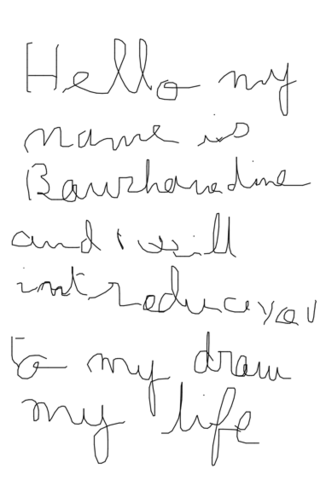 Hello my
name is

and I will
introduce you
to my draw
my life